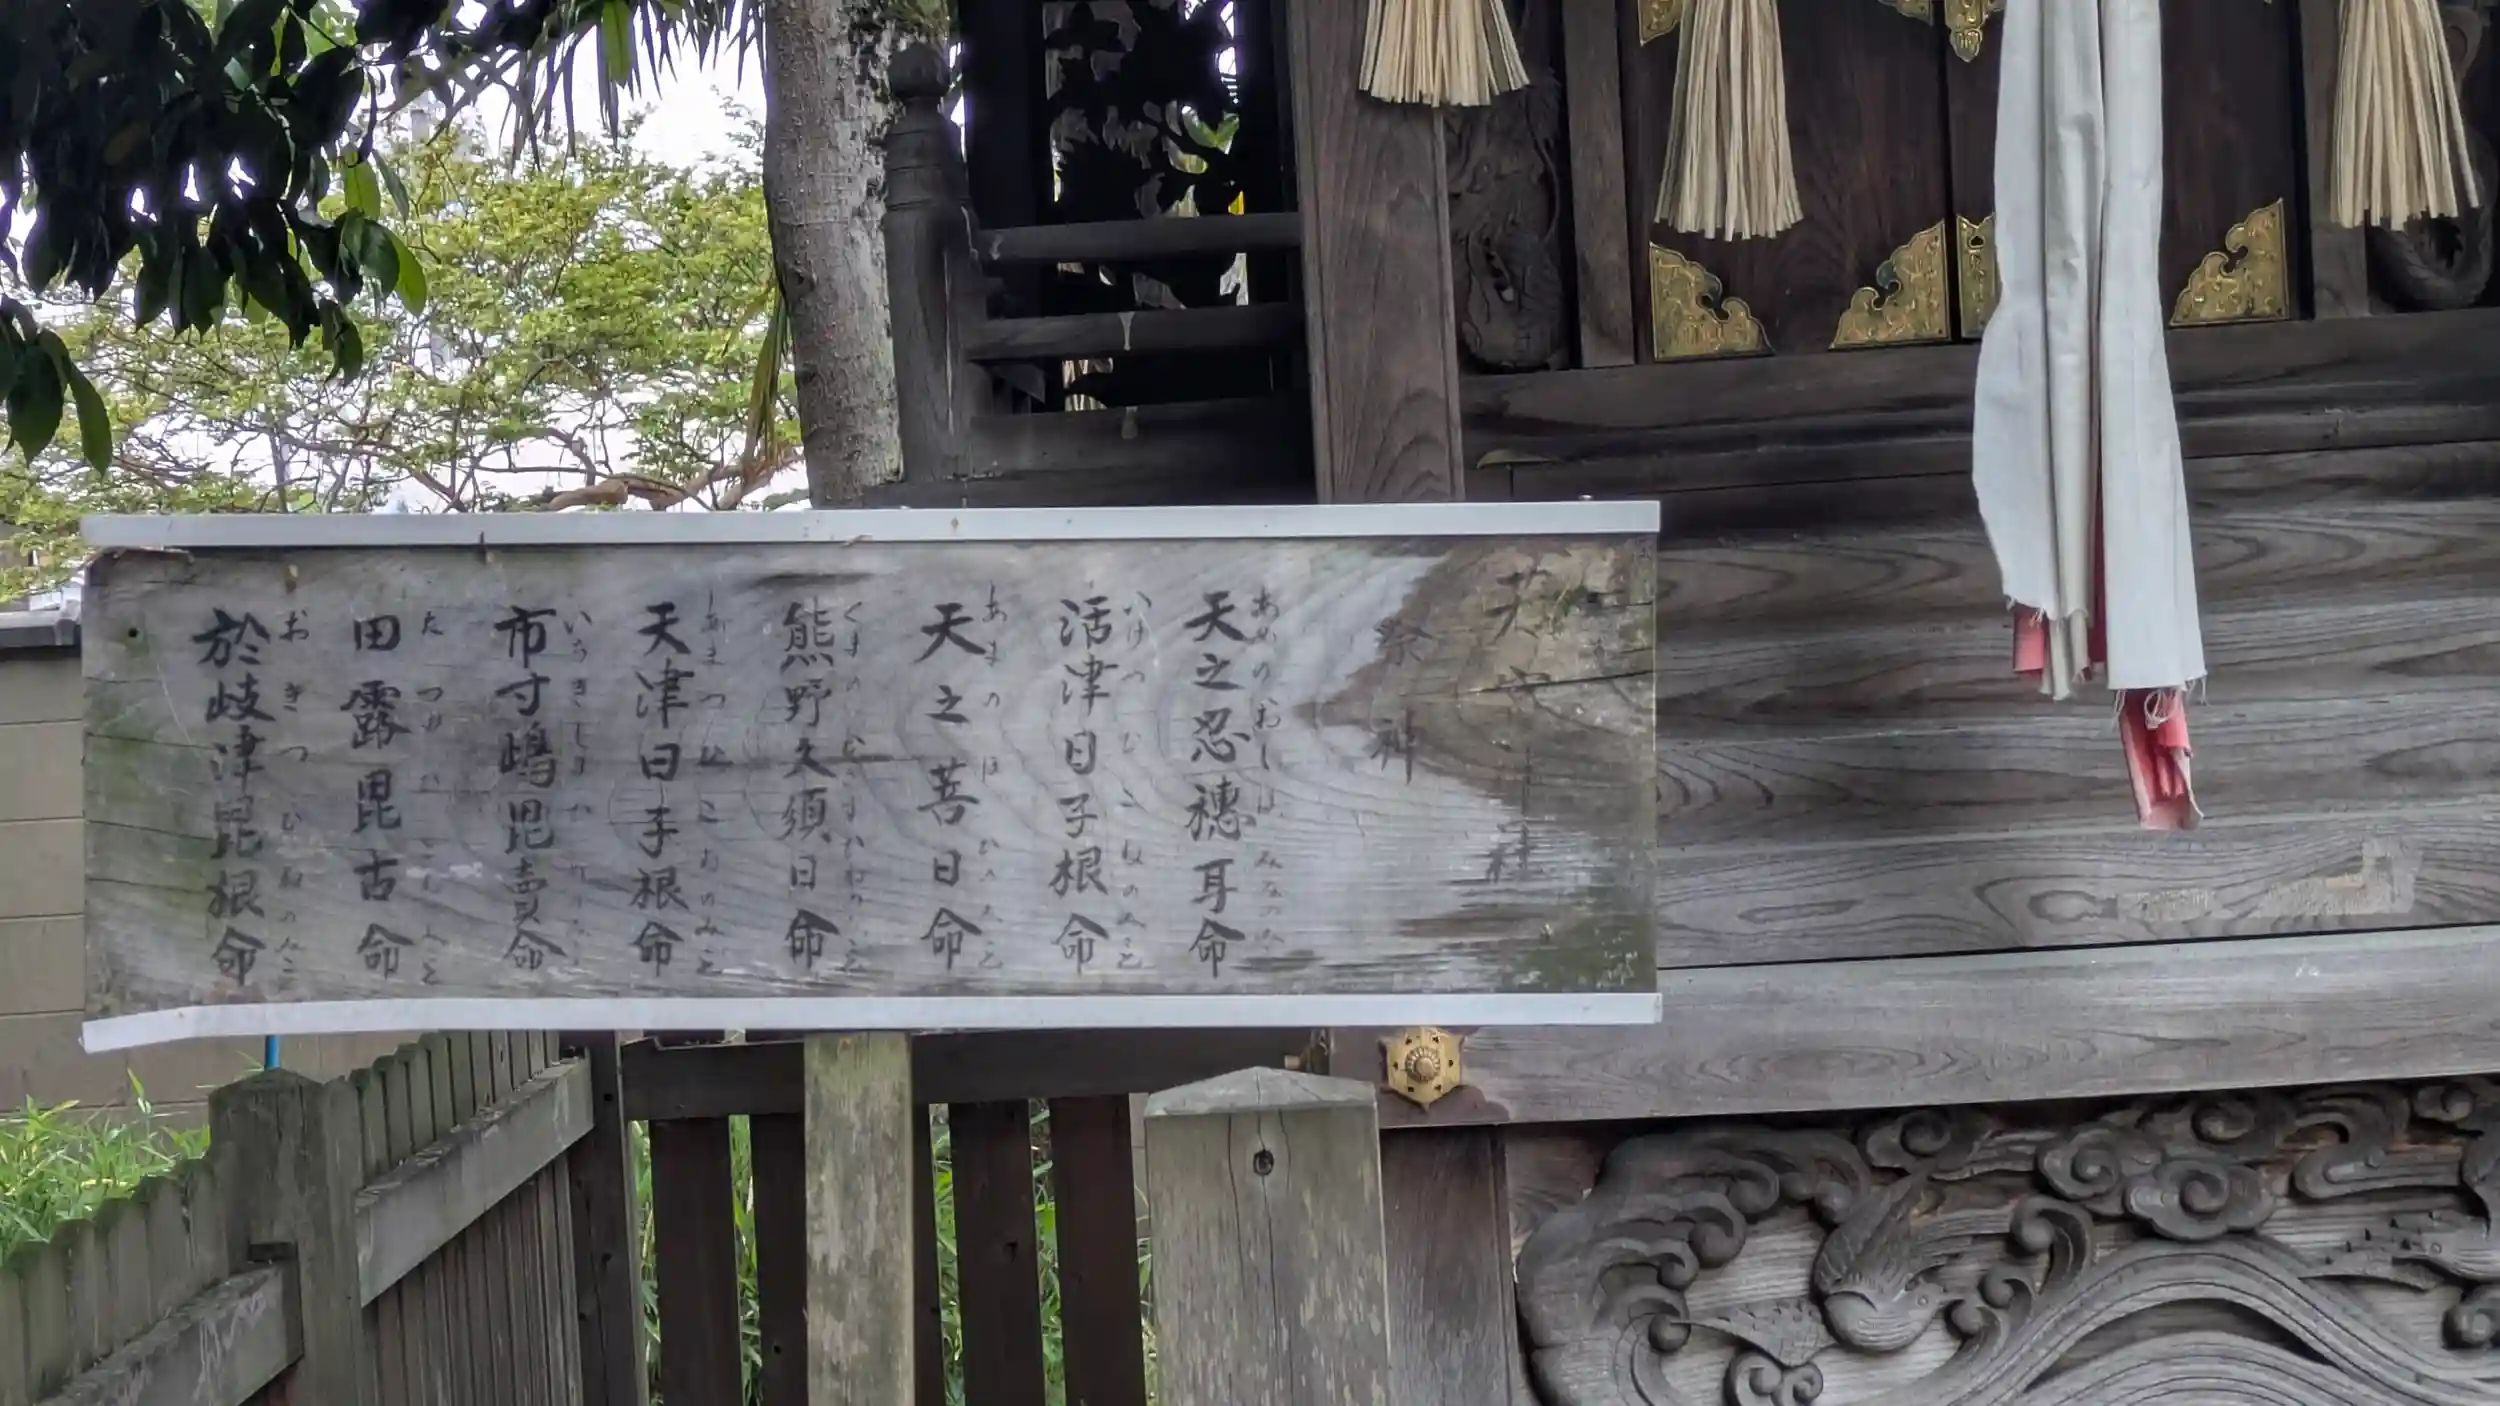 八王子社
祭神
天之忍穂耳命
あめのおしほみみのみこと
活津日子根命
いけつひこねのみこと
天之菩日命
あまのほひのみこと
熊野久須日命
くまのくすひのみこと
天津日子根命
あまつひこねのみこと
市寸嶋毘賣命
いちきしまひめのみこと
田露毘古命
たつゆひこのみこと
於岐津毘根命
おきつひねのみこと